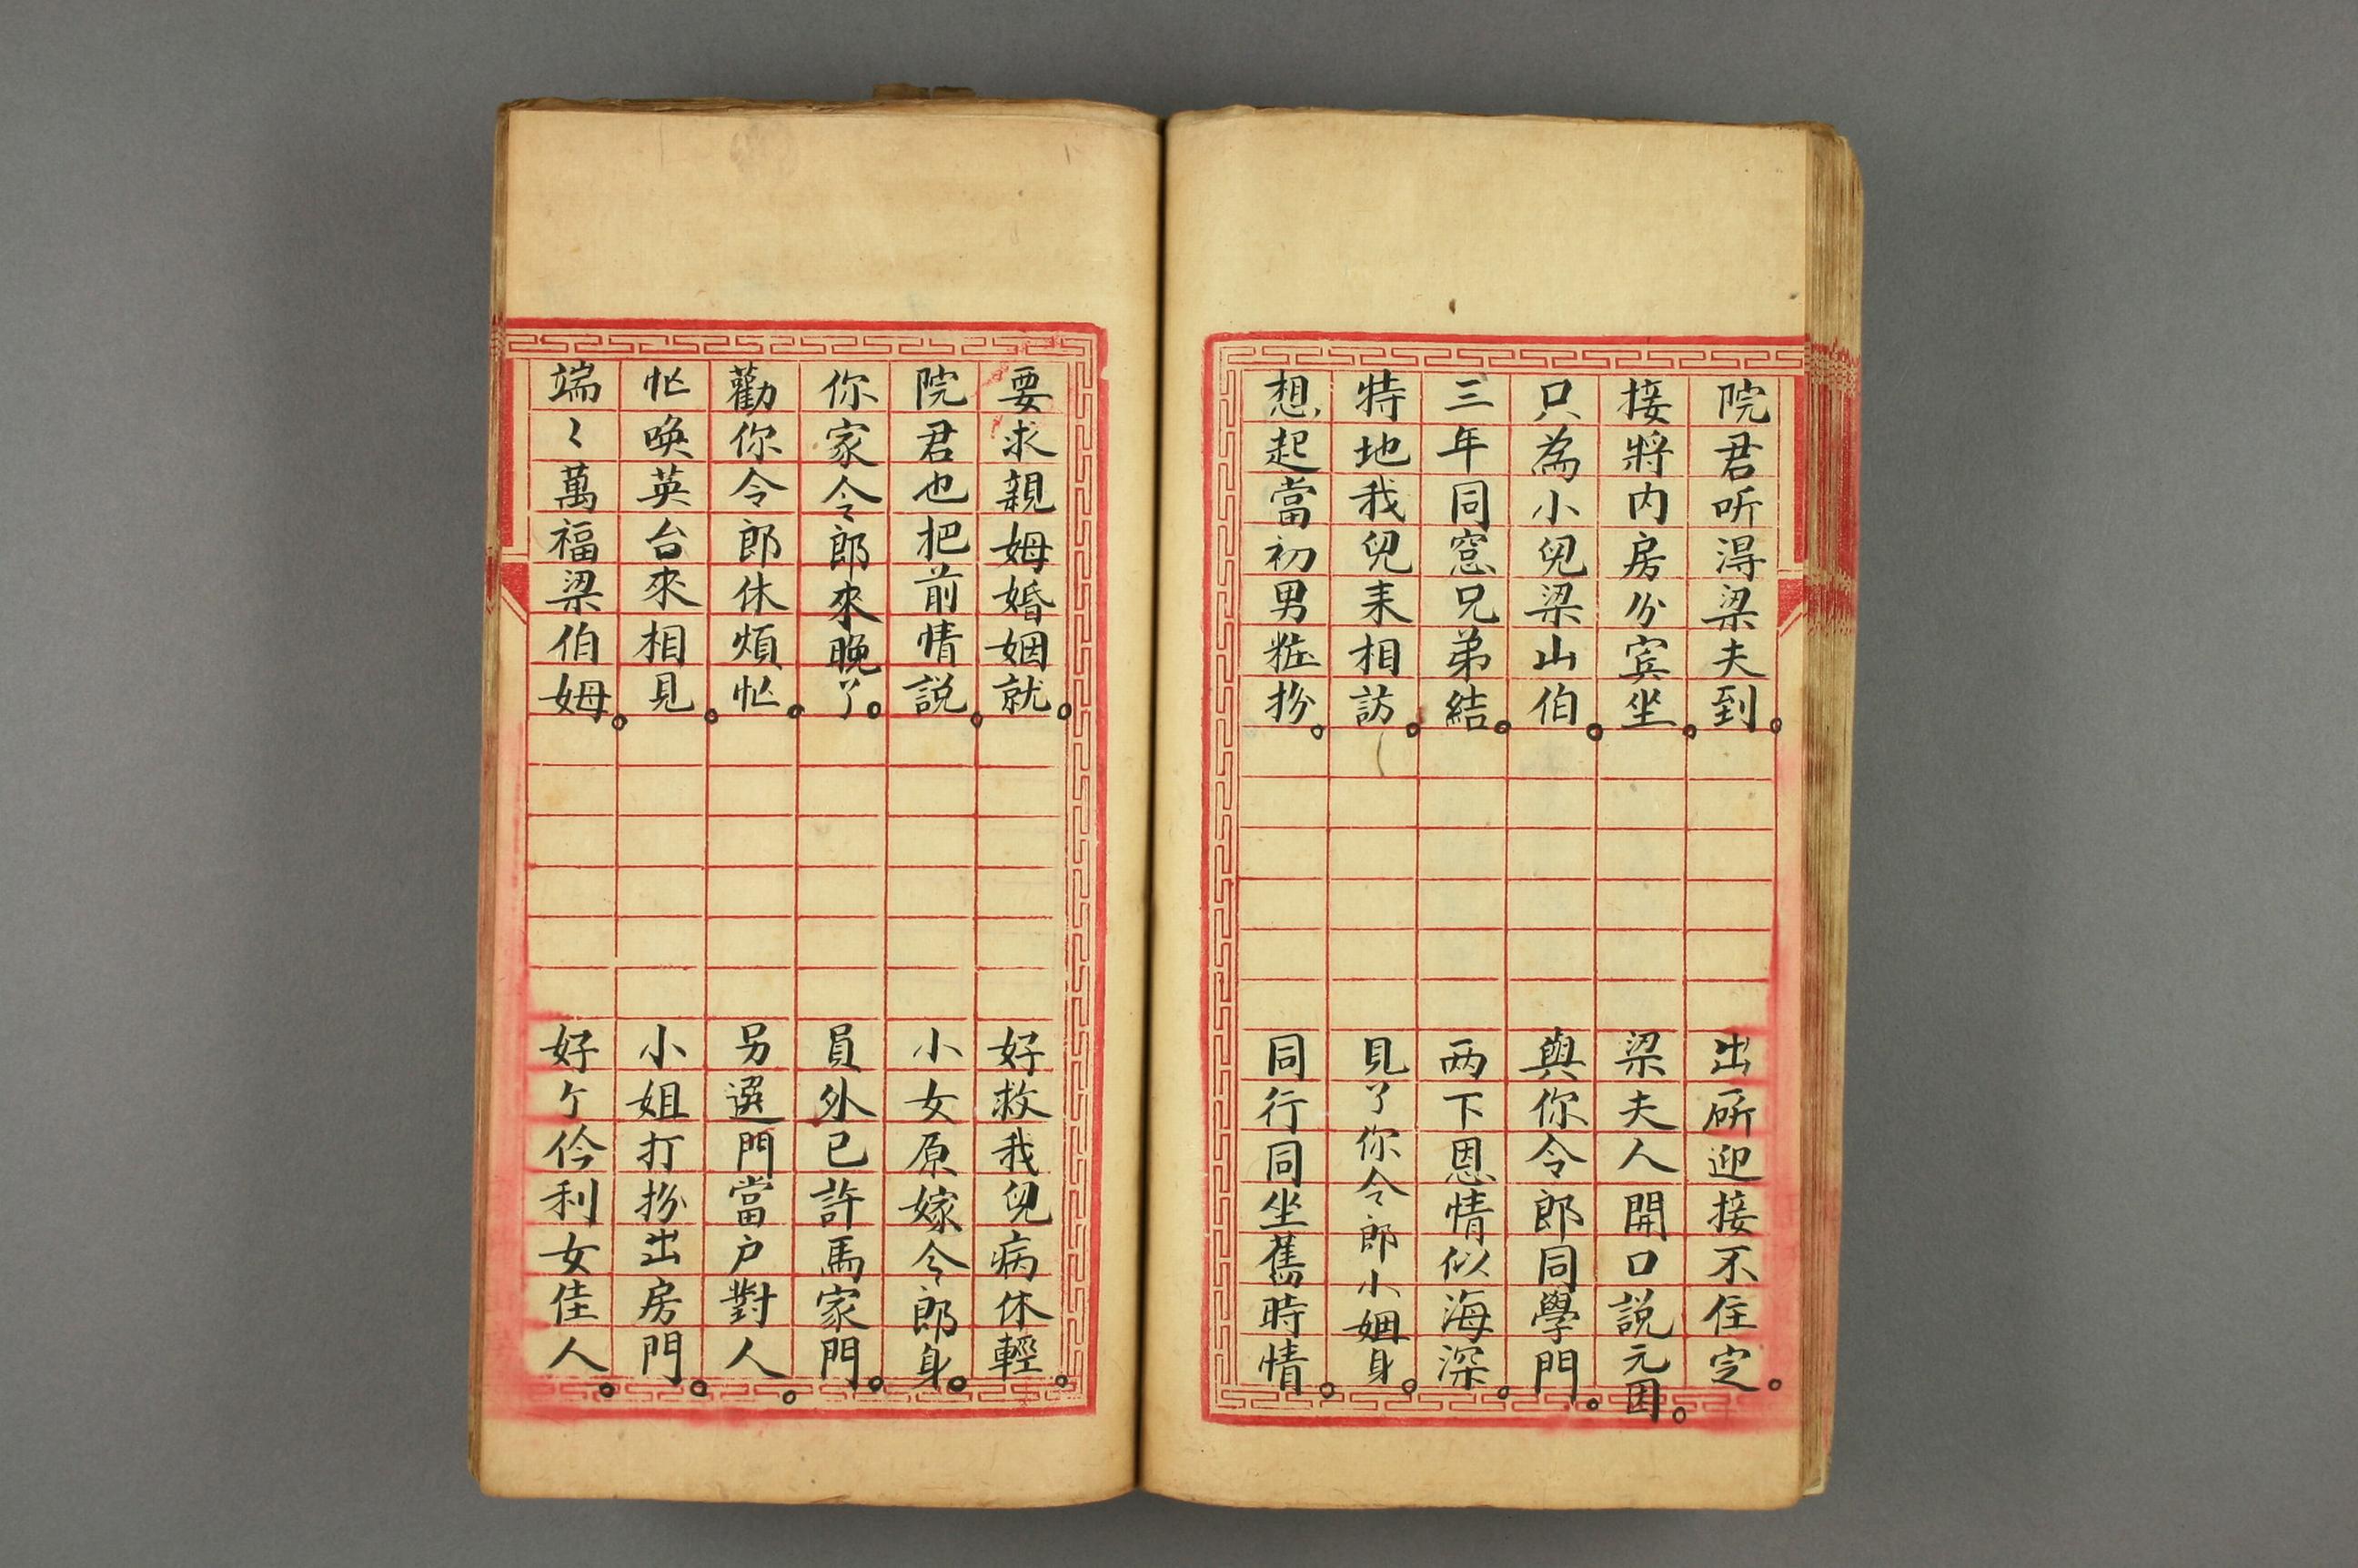 院君听淂梁夫到。出𠩄迎接不住定。
接將内房分宾坐。梁夫人開口説元因。
只為小兒梁山伯。與你令郎同學門。
三年同窓兄弟結。两下恩情似海深。
特地我兒来相訪。見了你令郎小姻身。
想起當初男粧扮。同行同坐舊時情。
要求親姆婚姻就。好救我兒病休輕。
院君也把前情説。小女原嫁令郎身。
你家令郎來晚了。員外已許馬家門。
勸你令郎休煩忙。另選門當户對人。
忙喚英台來相見。小姐打扮出房門。
端〻萬福梁伯姆。好个伶利女佳人。